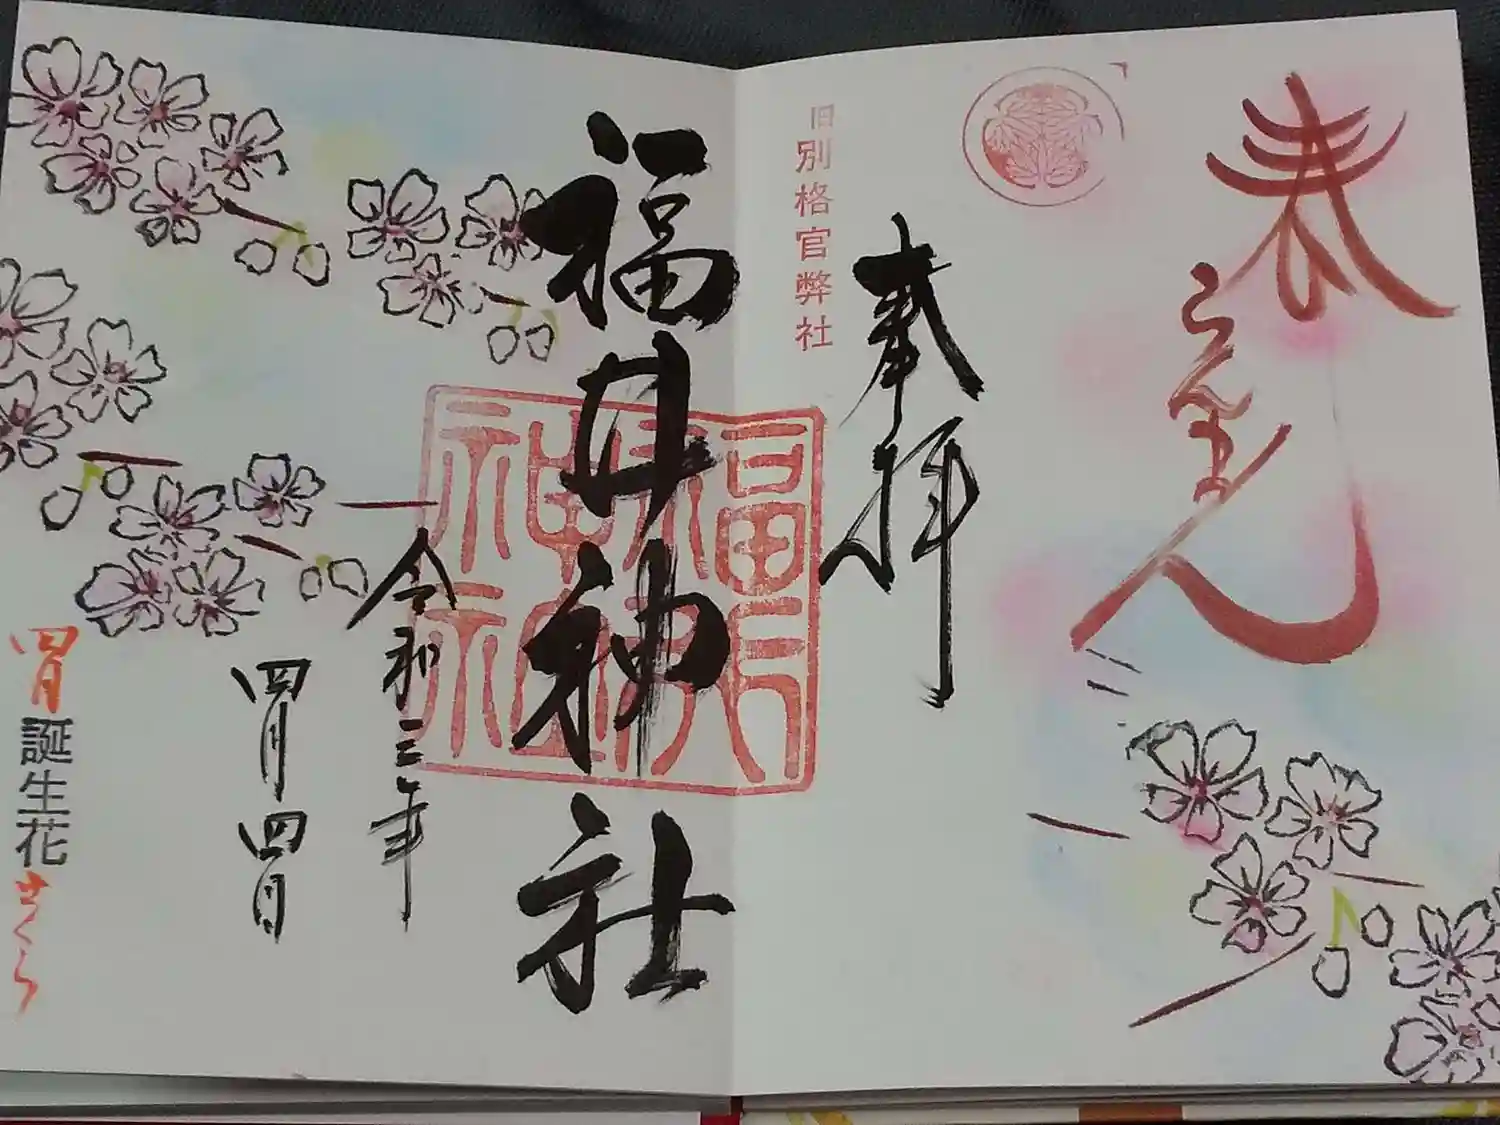 春らんまん
奉拝
旧別格官弊社
福井神社
福井神社
令和三年
四月四日
四月誕生花さくら